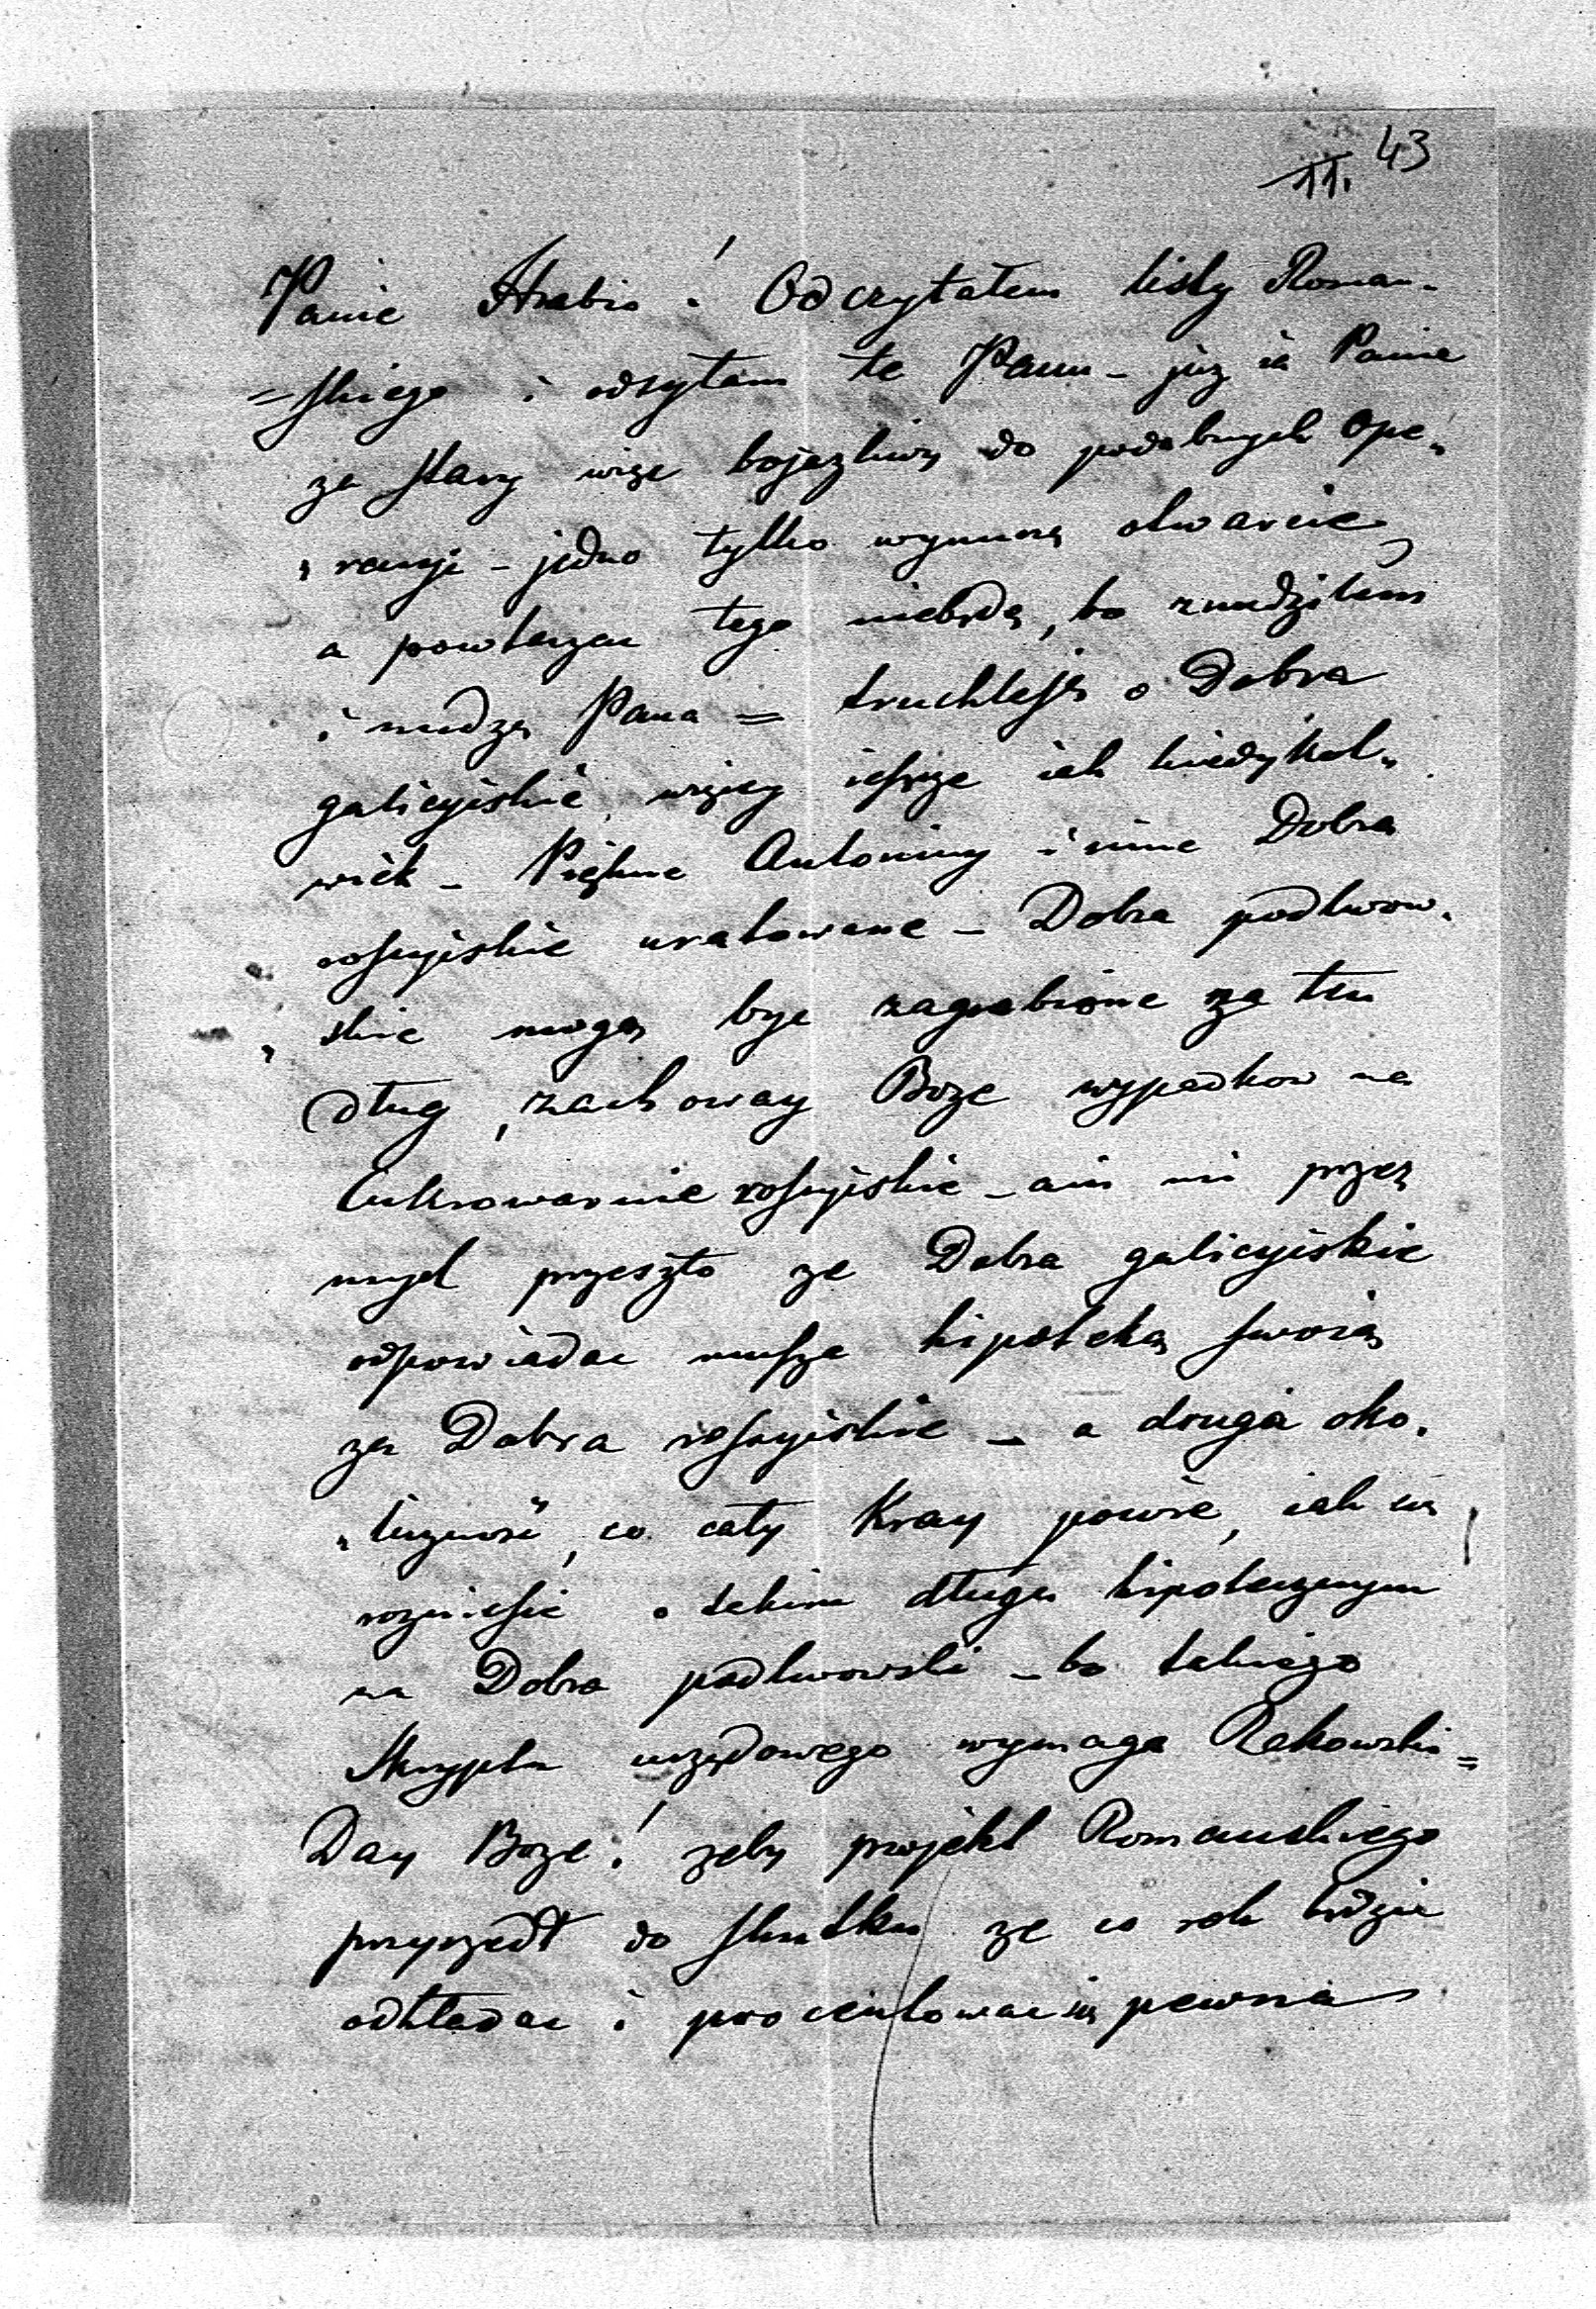 43
11.
Panie Hrabio! Odczytałem listy Roman-
=skiego i odsyłam te Panu – już ia Panie
za stary więc bojazliwy do podobnych ope„
„racyi – jedno tylko wymuszę otwarcie,
a powtarzac tego niebędę, bo znudziłem
i nudzę Pana = truchleję o Dobra
galicyjskie więcy ieszcze iak kiedykol„
wiek – Piękne Antoniny i inne Dobra
rossyjskie uratowane – Dobra podlwow„
„skie mogą byc zagrabione za ten
dług, zachoway Boze wypadkow na
Cukrowarnie rossyjskie – ani mi przez
mysl przeszło ze Dobra galicyjskie
odpowiadac musza hipoteką swoią
za Dobra rossyjskie – a druga oko„
„licznosć, co cały Kray powie, iak się
rozniesie o takim długu hipotecznym
na Dobra podlwowski – bo takiego
skryptu urzędowego wymaga Rakowski =
Day Boze! zeby projekt Romanskiego
przyszedł do skutku ze co rok będzie
odkładac i procentowac się pewna